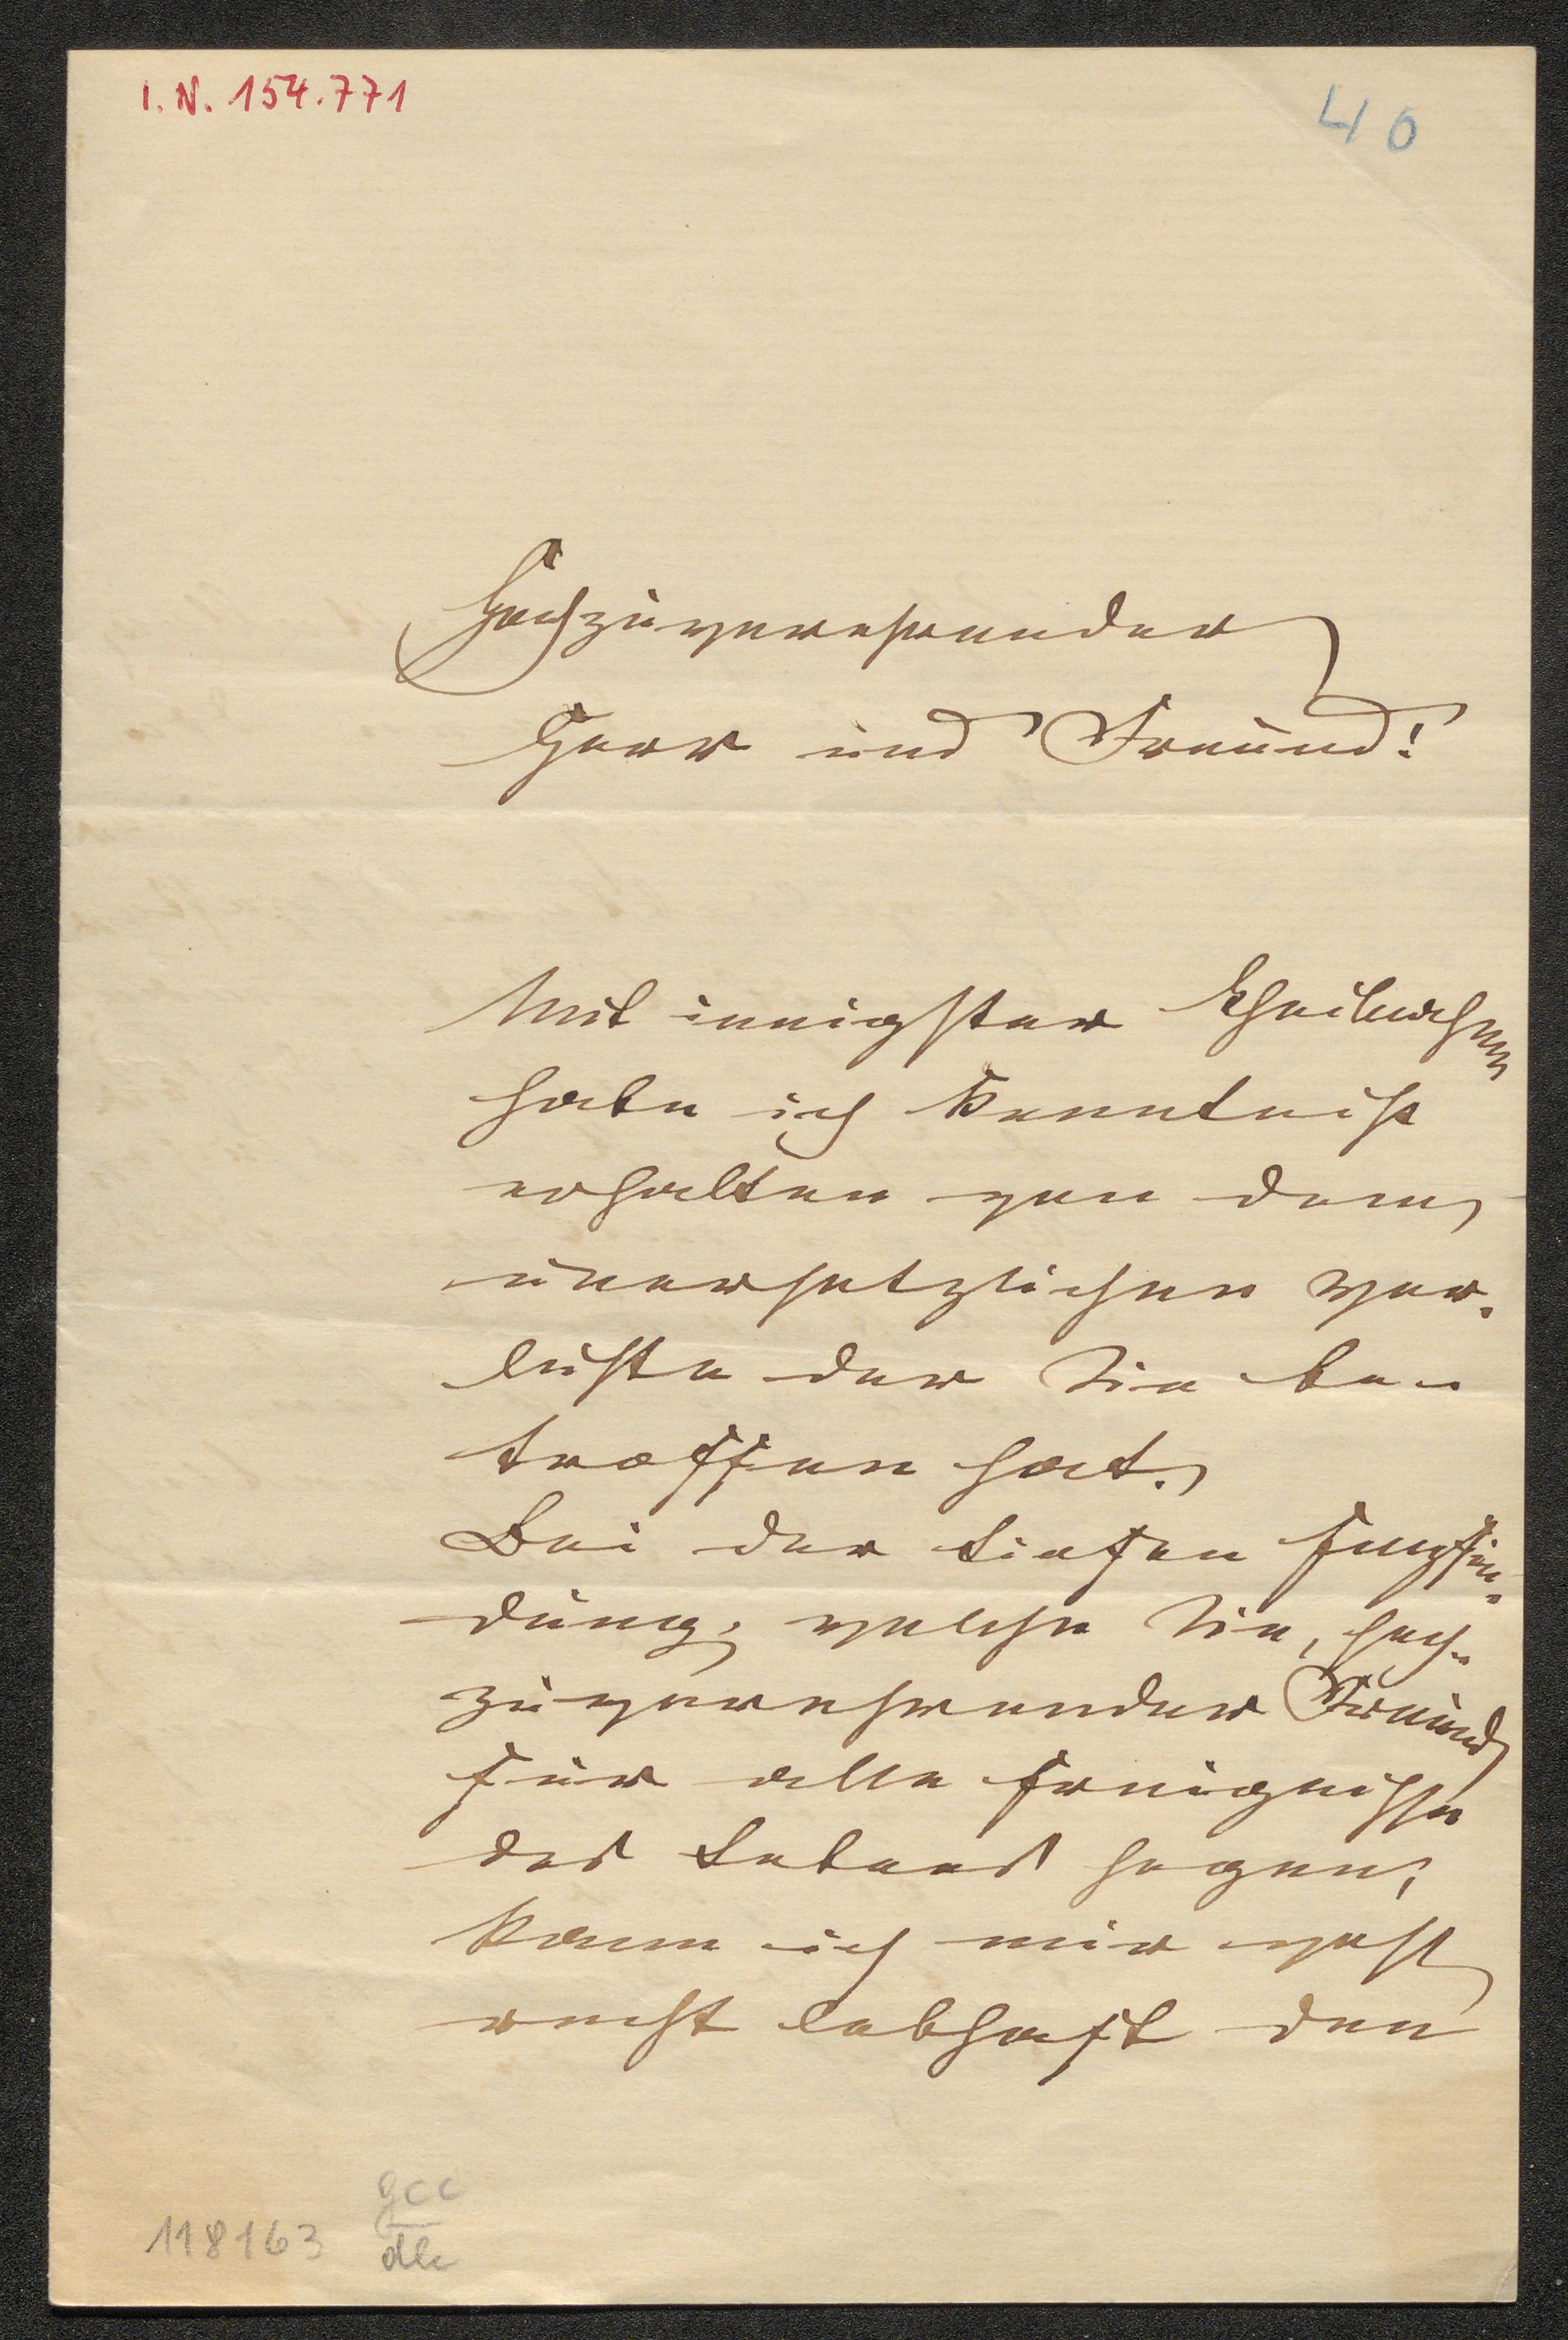 I. N. 154.771
40
Hochzuverehrender
Herr und Freund!
Mit innigster Theilnahme
habe ich Kenntniß
erhalten von dem
unersetzlichen Ver-
luste der Sie be-
troffen hat.
Bei der tiefen Empfin-
dung, welche Sie, hoch-
zuverehrender Freund
für alle Ereignisse
des Lebens hegen,
kann ich mir wohl
recht lebhaft den
118163
gcc
dlc